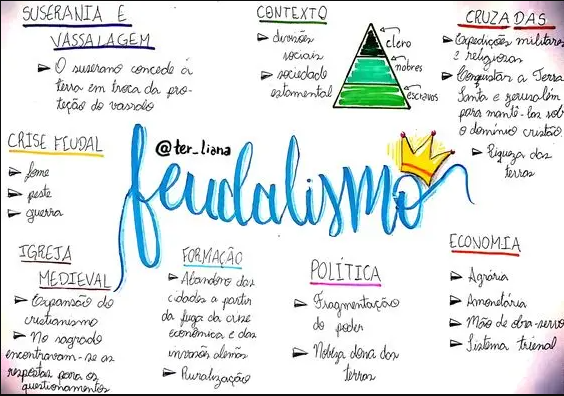 SUSERANIA E
VASSALAGEM
➤ O suserano concede a
terra em troca da pro-
teção do vassalo
CONTEXTO
➤ divisões
sociais
➤ sociedade
estamental
clero
nobres
escravos
CRUZADAS
➤ Expedições militares
e religiosas
➤ Conquistar a Terra
Santa e Jerusalém
para mantê-las sob
o domínio cristão
➤ Riqueza das
terras
CRISE FEUDAL
➤ fome
➤ peste
➤ guerra
@ter_liana
feudalismo
IGREJA
MEDIEVAL
➤ Expansão do
cristianismo
➤ No sagrado
encontravam-se as
respostas para os
questionamentos
FORMAÇÃO
➤ Abandono das
cidades a partir
da fuga da crise
econômica e das
invasões alemãs
➤ Ruralização
POLÍTICA
➤ Fragmentação
do poder
➤ Nobreza dona das
terras
ECONOMIA
➤ Agrária
➤ Amonetária
➤ Mão de obra-servo
➤ Sistema trienal